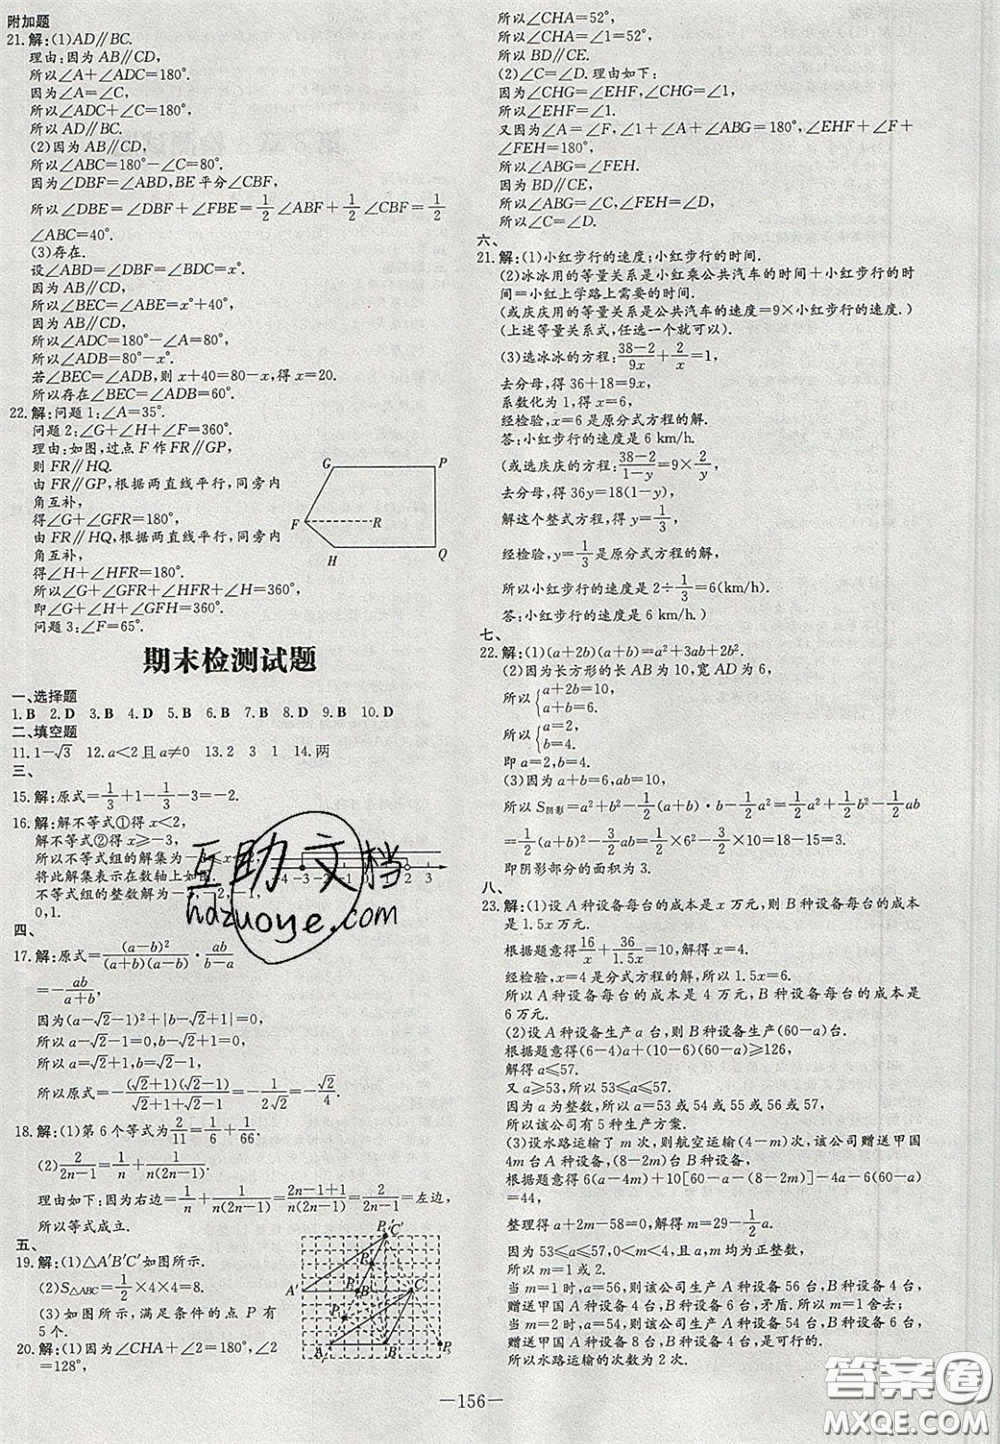 附加题
21.解:(1)AD∥BC.
理由:因为AB∥CD,
所以∠A+∠ADC=180°.
因为∠A=∠C,
所以∠ADC+∠C=180°.
所以AD∥BC.
(2)因为AB∥CD,
所以∠ABC=180°-∠C=80°.
因为∠DBF=∠ABD,BE平分∠CBF,
所以∠DBE=∠DBF+∠FBE=1/2∠ABF+1/2∠CBF=1/2
∠ABC=40°.
(3)存在.
设∠ABD=∠DBF=∠BDC=x°.
因为AB∥CD,
所以∠BEC=∠ABE=x°+40°.
因为AB∥CD,
所以∠ADC=180°-∠A=80°.
所以∠ADB=80°-x°.
若∠BEC=∠ADB,则x+40=80-x,得x=20.
所以存在∠BEC=∠ADB=60°.
22.解:问题1:∠A=35°.
问题2:∠G+∠H+∠F=360°.
理由:如图,过点F作FR∥GP,
则FR∥HQ.
由FR∥GP,根据两直线平行,同旁内
角互补,
得∠G+∠GFR=180°,
由FR∥HQ,根据两直线平行,同旁内
角互补,
得∠H+∠HFR=180°.
所以∠G+∠GFR+∠H+∠HFR=360°,
即∠G+∠H+∠GFH=360°.
问题3:∠F=65°.
G P
F R
H Q
期末检测试题
一、选择题
1.B 2.D 3.B 4.D 5.B 6.B 7.B 8.D 9.B 10.D
二、填空题
11.1-√3 12.a<2且a≠0 13.2 3 1 14.两
三、
15.解:原式=1/3+1-1/3-3=-2.
16.解:解不等式①得x<2,
解不等式②得x≥-3,
所以不等式组的解集为-3≤x<2.
将此解集表示在数轴上如图.
不等式组的整数解为-3,-2,-1,
0,1.
四、
17.解:原式=(a-b)²/(a+b)(a-b)·ab/(b-a)
=-ab/(a+b),
因为(a-√2-1)²+|b-√2+1|=0,
所以a-√2-1=0,b-√2+1=0,
所以a=√2+1,b=√2-1,
所以原式=-(√2+1)(√2-1)/(√2+1+√2-1)=-1/(2√2)=-√2/4.
18.解:(1)第6个等式为2/11=1/6+1/66.
(2)2/(2n-1)=1/n+1/n(2n-1).
理由如下:因为右边=1/n+1/n(2n-1)=(2n-1+1)/n(2n-1)=2/(2n-1)=左边,
所以等式成立.
五、
19.解:(1)△A′B′C′如图所示.
(2)S△ABC=1/2×4×4=8.
(3)如图所示,满足条件的点P有
5个.
20.解:(1)因为∠CHA+∠2=180°,∠2
=128°,
所以∠CHA=52°,
所以∠CHA=∠1=52°,
所以BD∥CE.
(2)∠C=∠D.理由如下:
因为∠CHG=∠EHF,∠CHG=∠1,
所以∠EHF=∠1.
又因为∠A=∠F,∠A+∠1+∠ABG=∠F+∠EHF+∠FEH=180°,
所以∠ABG=∠FEH.
因为BD∥CE,
所以∠ABG=∠C,∠FEH=∠D,
所以∠C=∠D.
六、
21.解:(1)小红步行的速度;小红步行的时间.
(2)冰冰用的等量关系是小红乘公共汽车的时间+小红步行的时
间=小红上学路上需要的时间.
(或庆庆用的等量关系是公共汽车的速度=9×小红步行的速度.)
(上述等量关系式,任选一个就可以).
(3)选冰冰的方程:(38-2)/9x+2/x=1,
去分母,得36+18=9x,
系数化为1,得x=6.
经检验,x=6是原分式方程的解.
答:小红步行的速度是6 km/h.
(或选庆庆的方程:(38-2)/(1-y)=9×2/y,
去分母,得36y=18(1-y),
解这个整式方程,得y=1/3,
经检验,y=1/3是原分式方程的解,
所以小红步行的速度是2÷1/3=6(km/h).
答:小红步行的速度是6 km/h.)
七、
22.解:(1)(a+2b)(a+b)=a²+3ab+2b².
(2)因为长方形的长AB为10,宽AD为6,
所以{a+2b=10, a+b=6.
所以{a=2, b=4.
即a=2,b=4.
(3)因为a+b=6,ab=10,
所以S阴影=a²+b²-1/2(a+b)·b-1/2a²=1/2a²+1/2b²-1/2ab
=1/2(a+b)²-3/2ab=1/2×6²-3/2×10=18-15=3.
即阴影部分的面积为3.
八、
23.解:(1)设A种设备每台的成本是x万元,则B种设备每台的成本
是1.5x万元.
根据题意得16/x+36/1.5x=10,解得x=4.
经检验,x=4是分式方程的解,所以1.5x=6.
所以A种设备每台的成本是4万元,B种设备每台的成本是
6万元.
(2)设A种设备生产a台,则B种设备生产(60-a)台.
根据题意得(6-4)a+(10-6)(60-a)≥126,
解得a≤57.
又a≥53,所以53≤a≤57.
因为a为整数,所以a=53或54或55或56或57,
所以该公司有5种生产方案.
(3)设水路运输了m次,则航空运输(4-m)次,该公司赠送甲国
4m台A种设备,(8-2m)台B种设备,
根据题意得6(a-4m)+10[60-a-(8-2m)]-4a-6(60-a)
=44,
整理得a+2m-58=0,解得m=29-1/2a.
因为53≤a≤57,0<m<4且a,m均为正整数,
所以m=1或2.
当m=1时,a=56,则该公司生产A种设备56台,B种设备4台,
赠送甲国A种设备4台,B种设备6台,矛盾.所以m=1舍去;
当m=2时,a=54,则该公司生产A种设备54台,B种设备6台,
赠送甲国A种设备8台,B种设备4台,是可行的.
所以水路运输的次数为2次.
—156—
互助文档
hdzuoye.com
答案圈
MXQE.COM